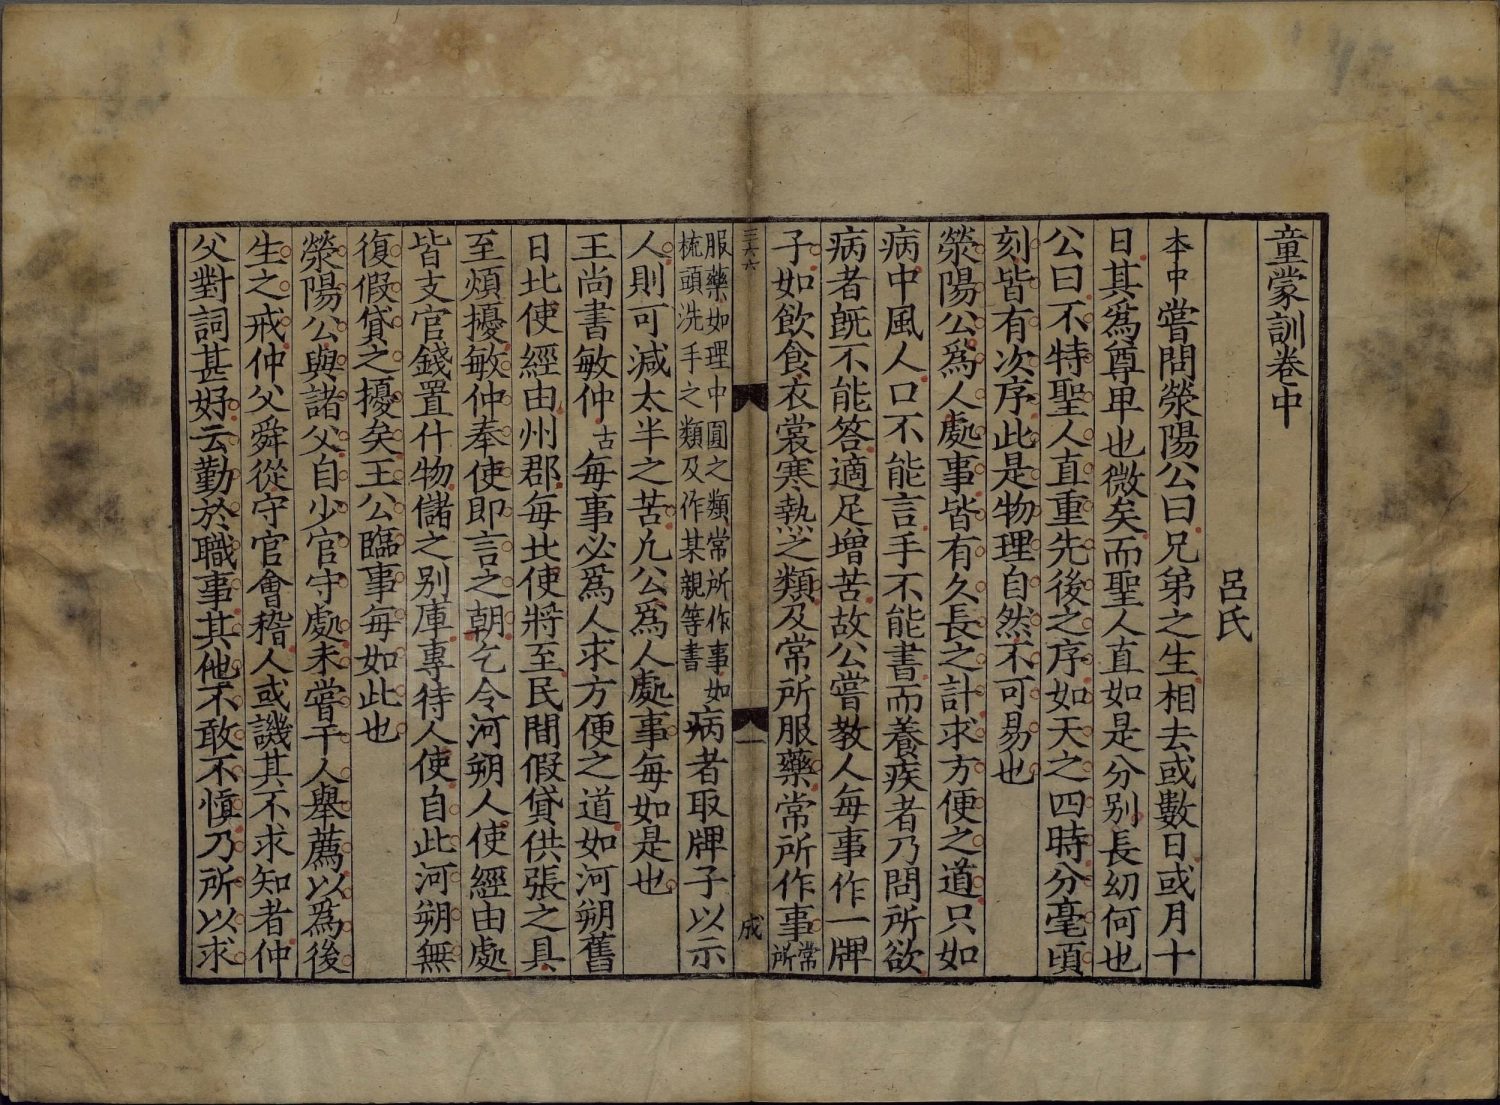 童蒙訓卷中
呂氏
本中嘗問滎陽公曰兄弟之生相去或數日或月十
日其爲尊卑也微矣而聖人直如是分别長㓜何也
公曰不特聖人直重先後之序如天之四時分毫頃
刻皆有次序此是物理自然不可易也
滎陽公爲人處事皆有久長之計求方便之道只如
病中風人口不能言手不能書而養疾者乃問所欲
病者旣不能答適足增苦故公嘗教人每事作一牌
子如飲食衣裳寒熱之類及常所服藥常所作事常所
三六六
一
成
服藥如理中圓之類常所作事如
梳頭洗手之類及作某親等書
病者取牌子以示
人則可減太半之苦凡公爲人處事每如是也
王尚書敏仲古每事必爲人求方便之道如河朔舊
日北使經由州郡每北使將至民間假貸供張之具
至煩擾敏仲奉使即言之朝乞令河朔人使經由處
皆支官錢置什物儲之别庫專待人使自此河朔無
復假貸之擾矣王公臨事每如此也
滎陽公與諸父自少官守處未嘗干人舉薦以爲後
生之戒仲父舜從守官會稽人或譏其不求知者仲
父對詞甚好云勤於職事其他不敢不慎乃所以求